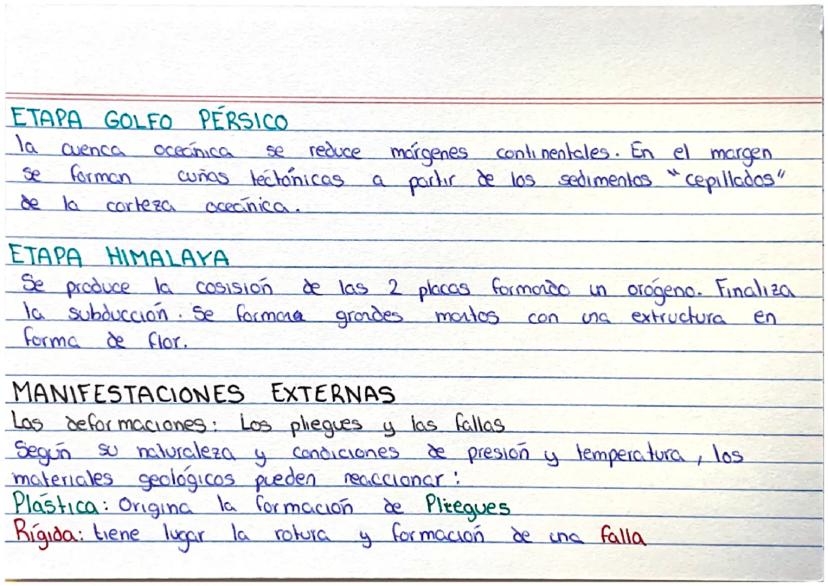 ETAPA GOLFO PÉRSICO
la cuenca oceánica se reduce márgenes continentales. En el margen
se forman cuñas tectónicas a partir de los sedimentos "cepillados"
de la corteza oceánica.
ETAPA HIMALAYA
Se produce la cosisión de las 2 placas formando un orógeno. Finaliza
la subducción. Se forman grandes mantos con una extructura en
forma de flor.
MANIFESTACIONES EXTERNAS
Las deformaciones: Los pliegues y las fallas
Según su naturaleza y condiciones de presión y temperatura, los
materiales geológicos pueden reaccionar:
Plástica: Origina la formación de Pliegues
Rígida: tiene lugar la rotura y formación de una falla